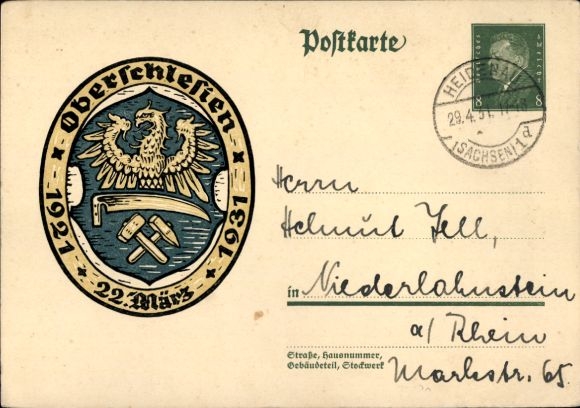 Oberschlesien
1921
1931
22. März
Postkarte
DEUTSCHES REICH
8 8
HEIDENAU
29.4.31.
(SACHSEN) 1 d
Herrn
Helmut Jell,
in Niederlahnstein
a/ Rhein
Straße, Hausnummer,
Gebäudeteil, Stockwerk
Markstr. 65.